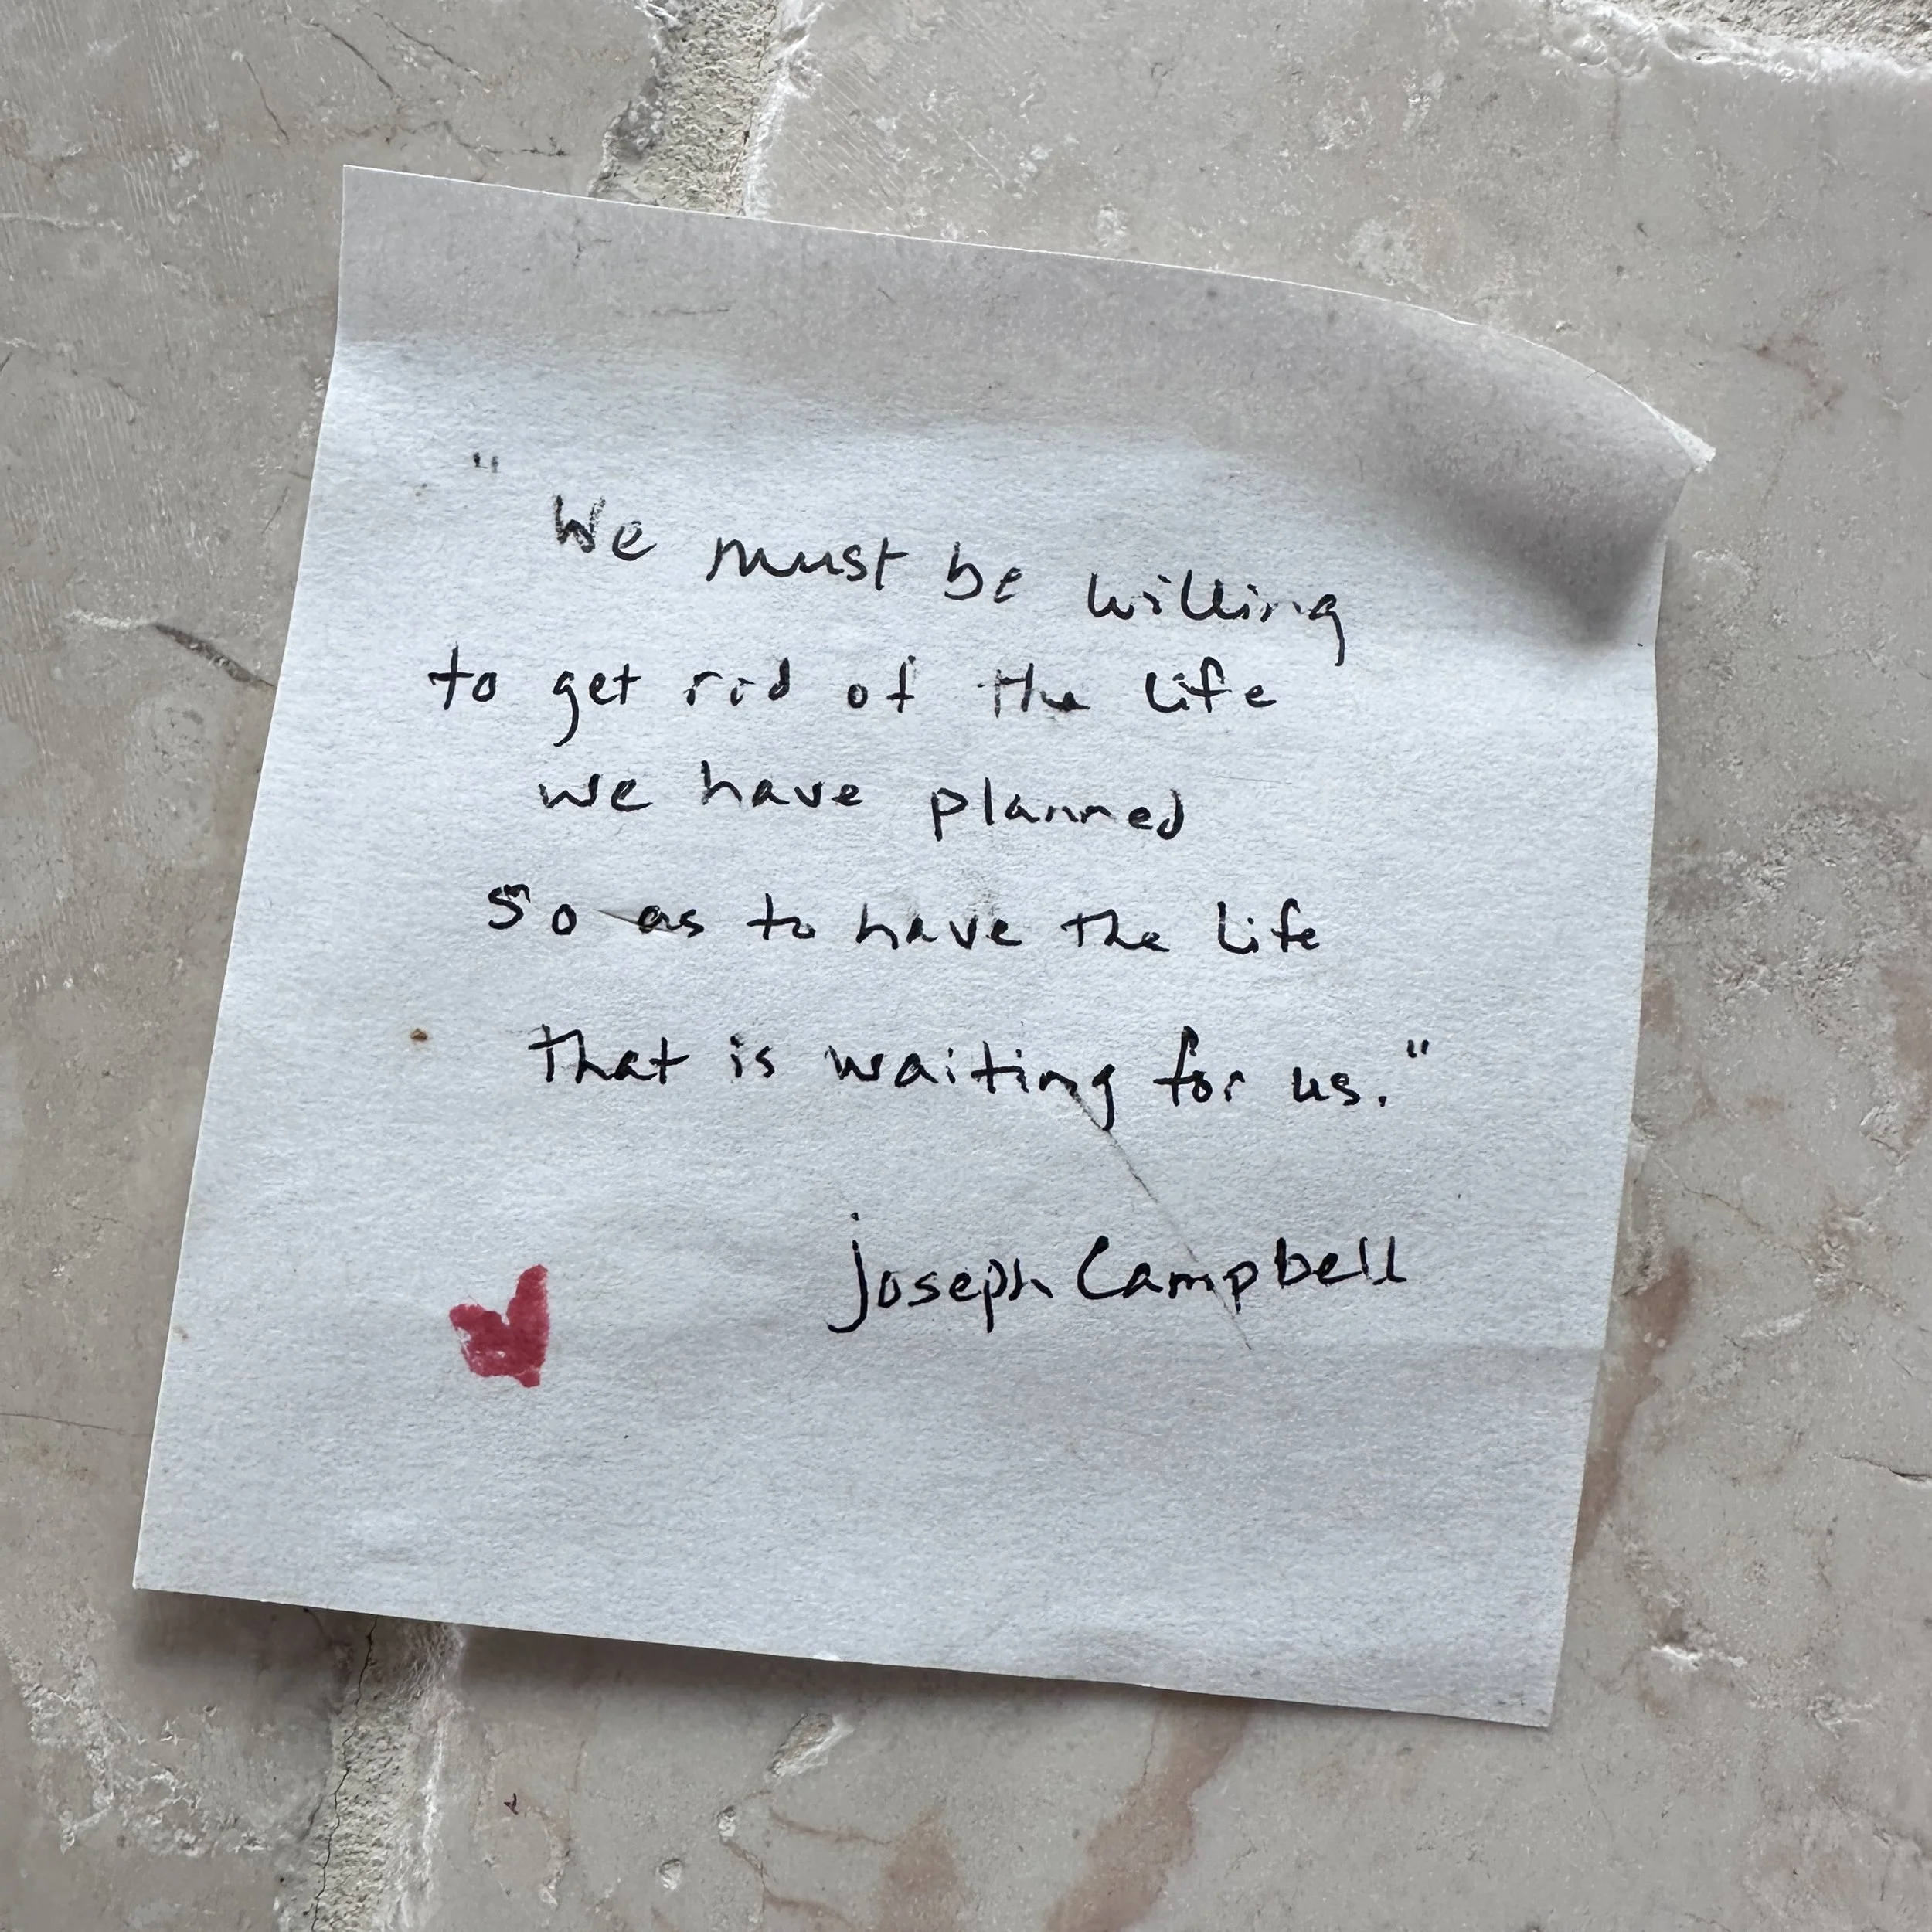 "We must be willing
to get rid of the life
we have planned
so as to have the life
that is waiting for us."
Joseph Campbell